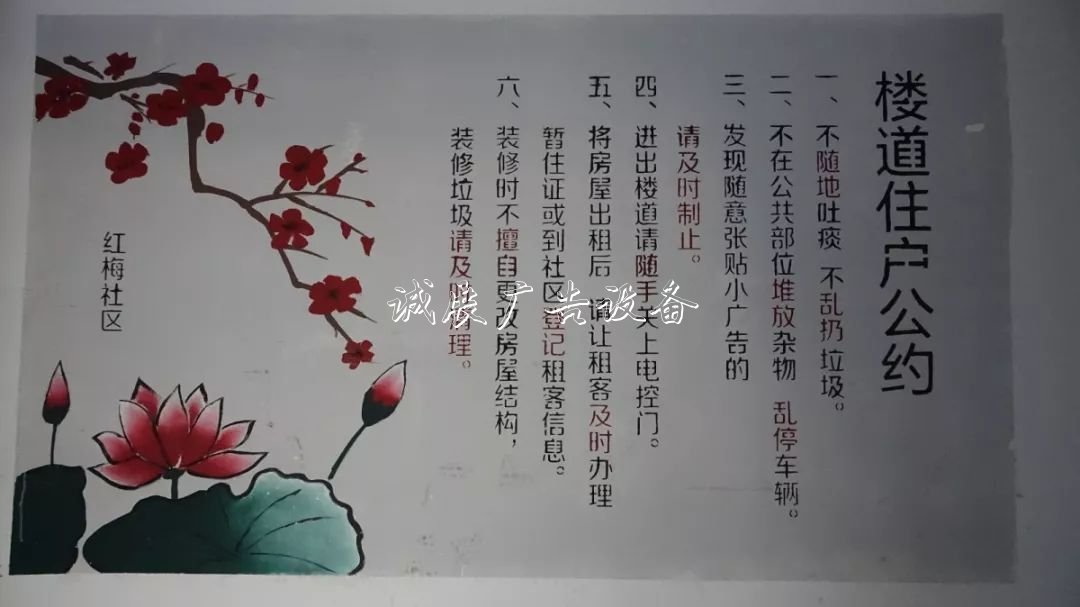 楼道住户公约
一、不随地吐痰 不乱扔垃圾。
二、不在公共部位堆放杂物 乱停车辆。
三、发现随意张贴小广告的
请及时制止。
四、进出楼道请随手关上电控门。
五、将房屋出租后 请让租客及时办理
暂住证或到社区登记租客信息。
六、装修时不擅自更改房屋结构，
装修垃圾请及时清理。
红梅社区
诚展广告设备